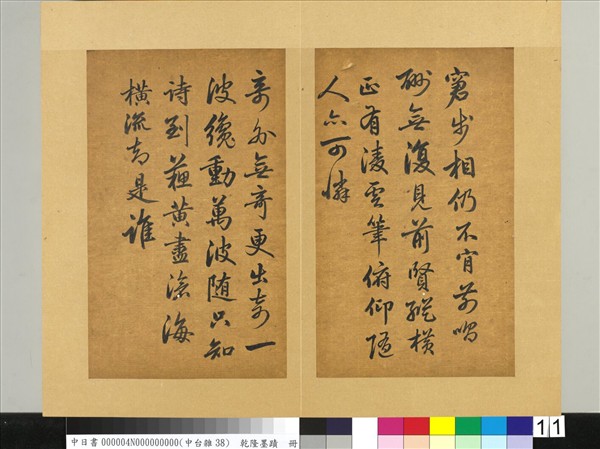 窘步相仍不肎前唱
酬無復見前賢縱橫
正有淩雲筆俯仰隨
人亦可憐
奇外無奇更出奇一
波纔動萬波随只知
詩到蘇黃盡滄海
橫流却是誰
中日書 000004N000000000(中台雜38) 乾隆墨蹟 冊
11